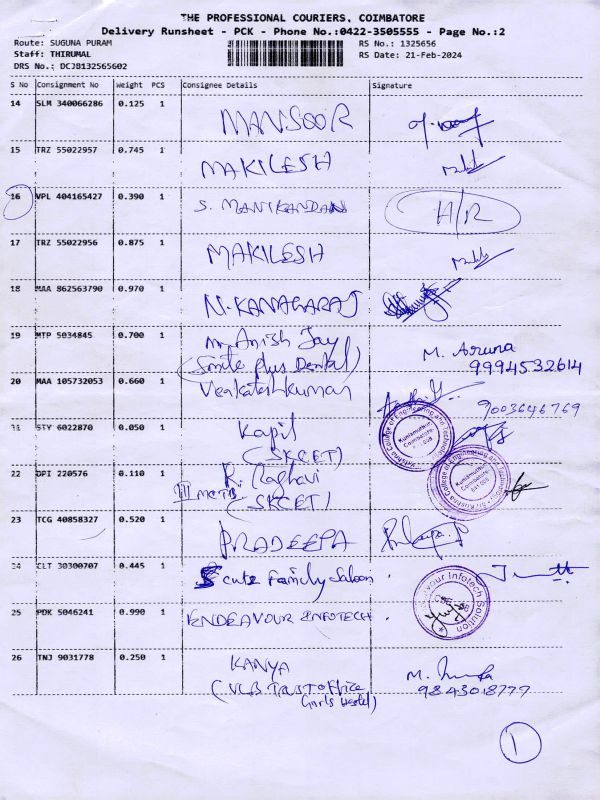 THE PROFESSIONAL COURIERS, COIMBATORE
Delivery Runsheet - PCK - Phone No.:0422-3505555 - Page No.:2
Route: SUGUNA PURAM RS No.: 1325656
Staff: THIRUMAL RS Date: 21-Feb-2024
DRS No.: DCJB132565602
S No Consignment No Weight PCS Consignee Details Signature
14 SLM 340066286 0.125 1 MANSOOR
15 TRZ 55022957 0.745 1 MAKILESH
16 VPL 404165427 0.390 1 S. MANIKANDAN H/R
17 TRZ 55022956 0.875 1 MAKILESH
18 MAA 862563790 0.970 1 N. KANAGARAJ
19 MTP 5034845 0.700 1 Mr. Anish Jay M. Aruna
(Smile plus Dental) 9994532614
20 MAA 105732053 0.660 1 Venkateshkumar
9003646769
STY 6022870 0.050 1 Kapil
(SKCET)
22 DPI 220576 0.110 1 R. Raghavi
III (SKCET)
23 TCG 40858327 0.520 1 PRADEEPA
CLT 30300707 0.445 1 cutz Family Saloon
25 PDK 5046241 0.990 1 ENDEAVOUR INFOTECH
26 TNJ 9031778 0.250 1 KANYA M.
(VLB TRUST office 9843018777
Girls Hostel)
1